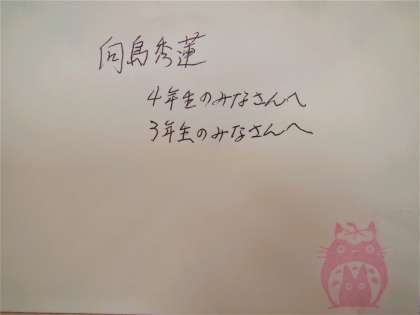 向島秀蓮
4年生のみなさんへ
3年生のみなさんへ